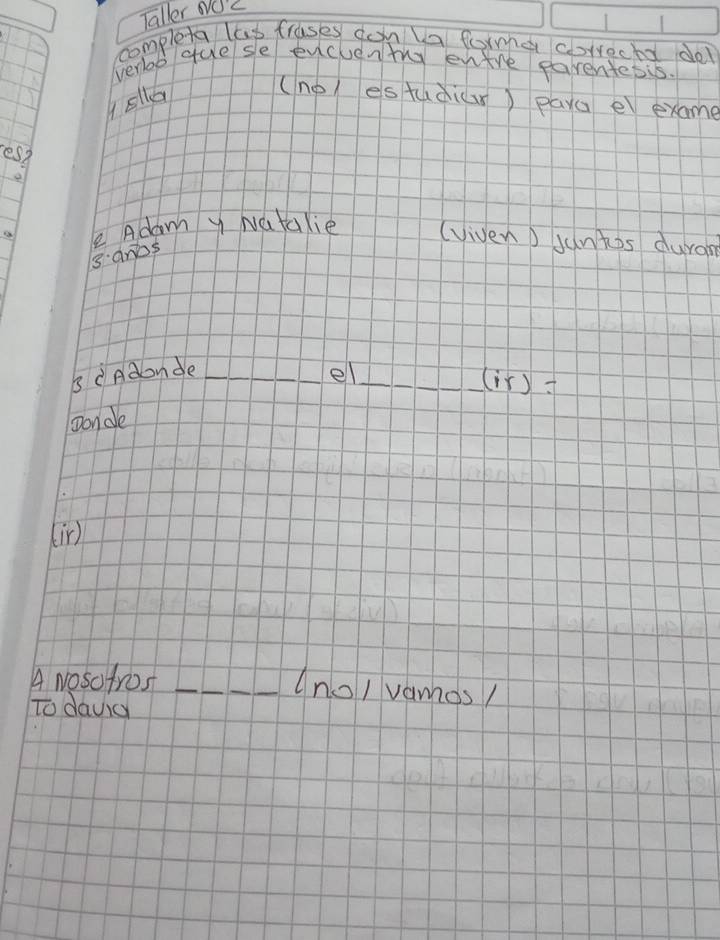 Taller NO 2
completa las frases con la forma correcta del
verbo que se encuentra entre parentesis.
1 Ella (no/ estudiar) para el exame
es?
2 Adam y Natalie (viven) juntos duran
3 años
3 ¿Adonde ______ el ______ (ir) =
Donde
(ir)
4 Nosotros ____ (no/ vamos/
Todavia